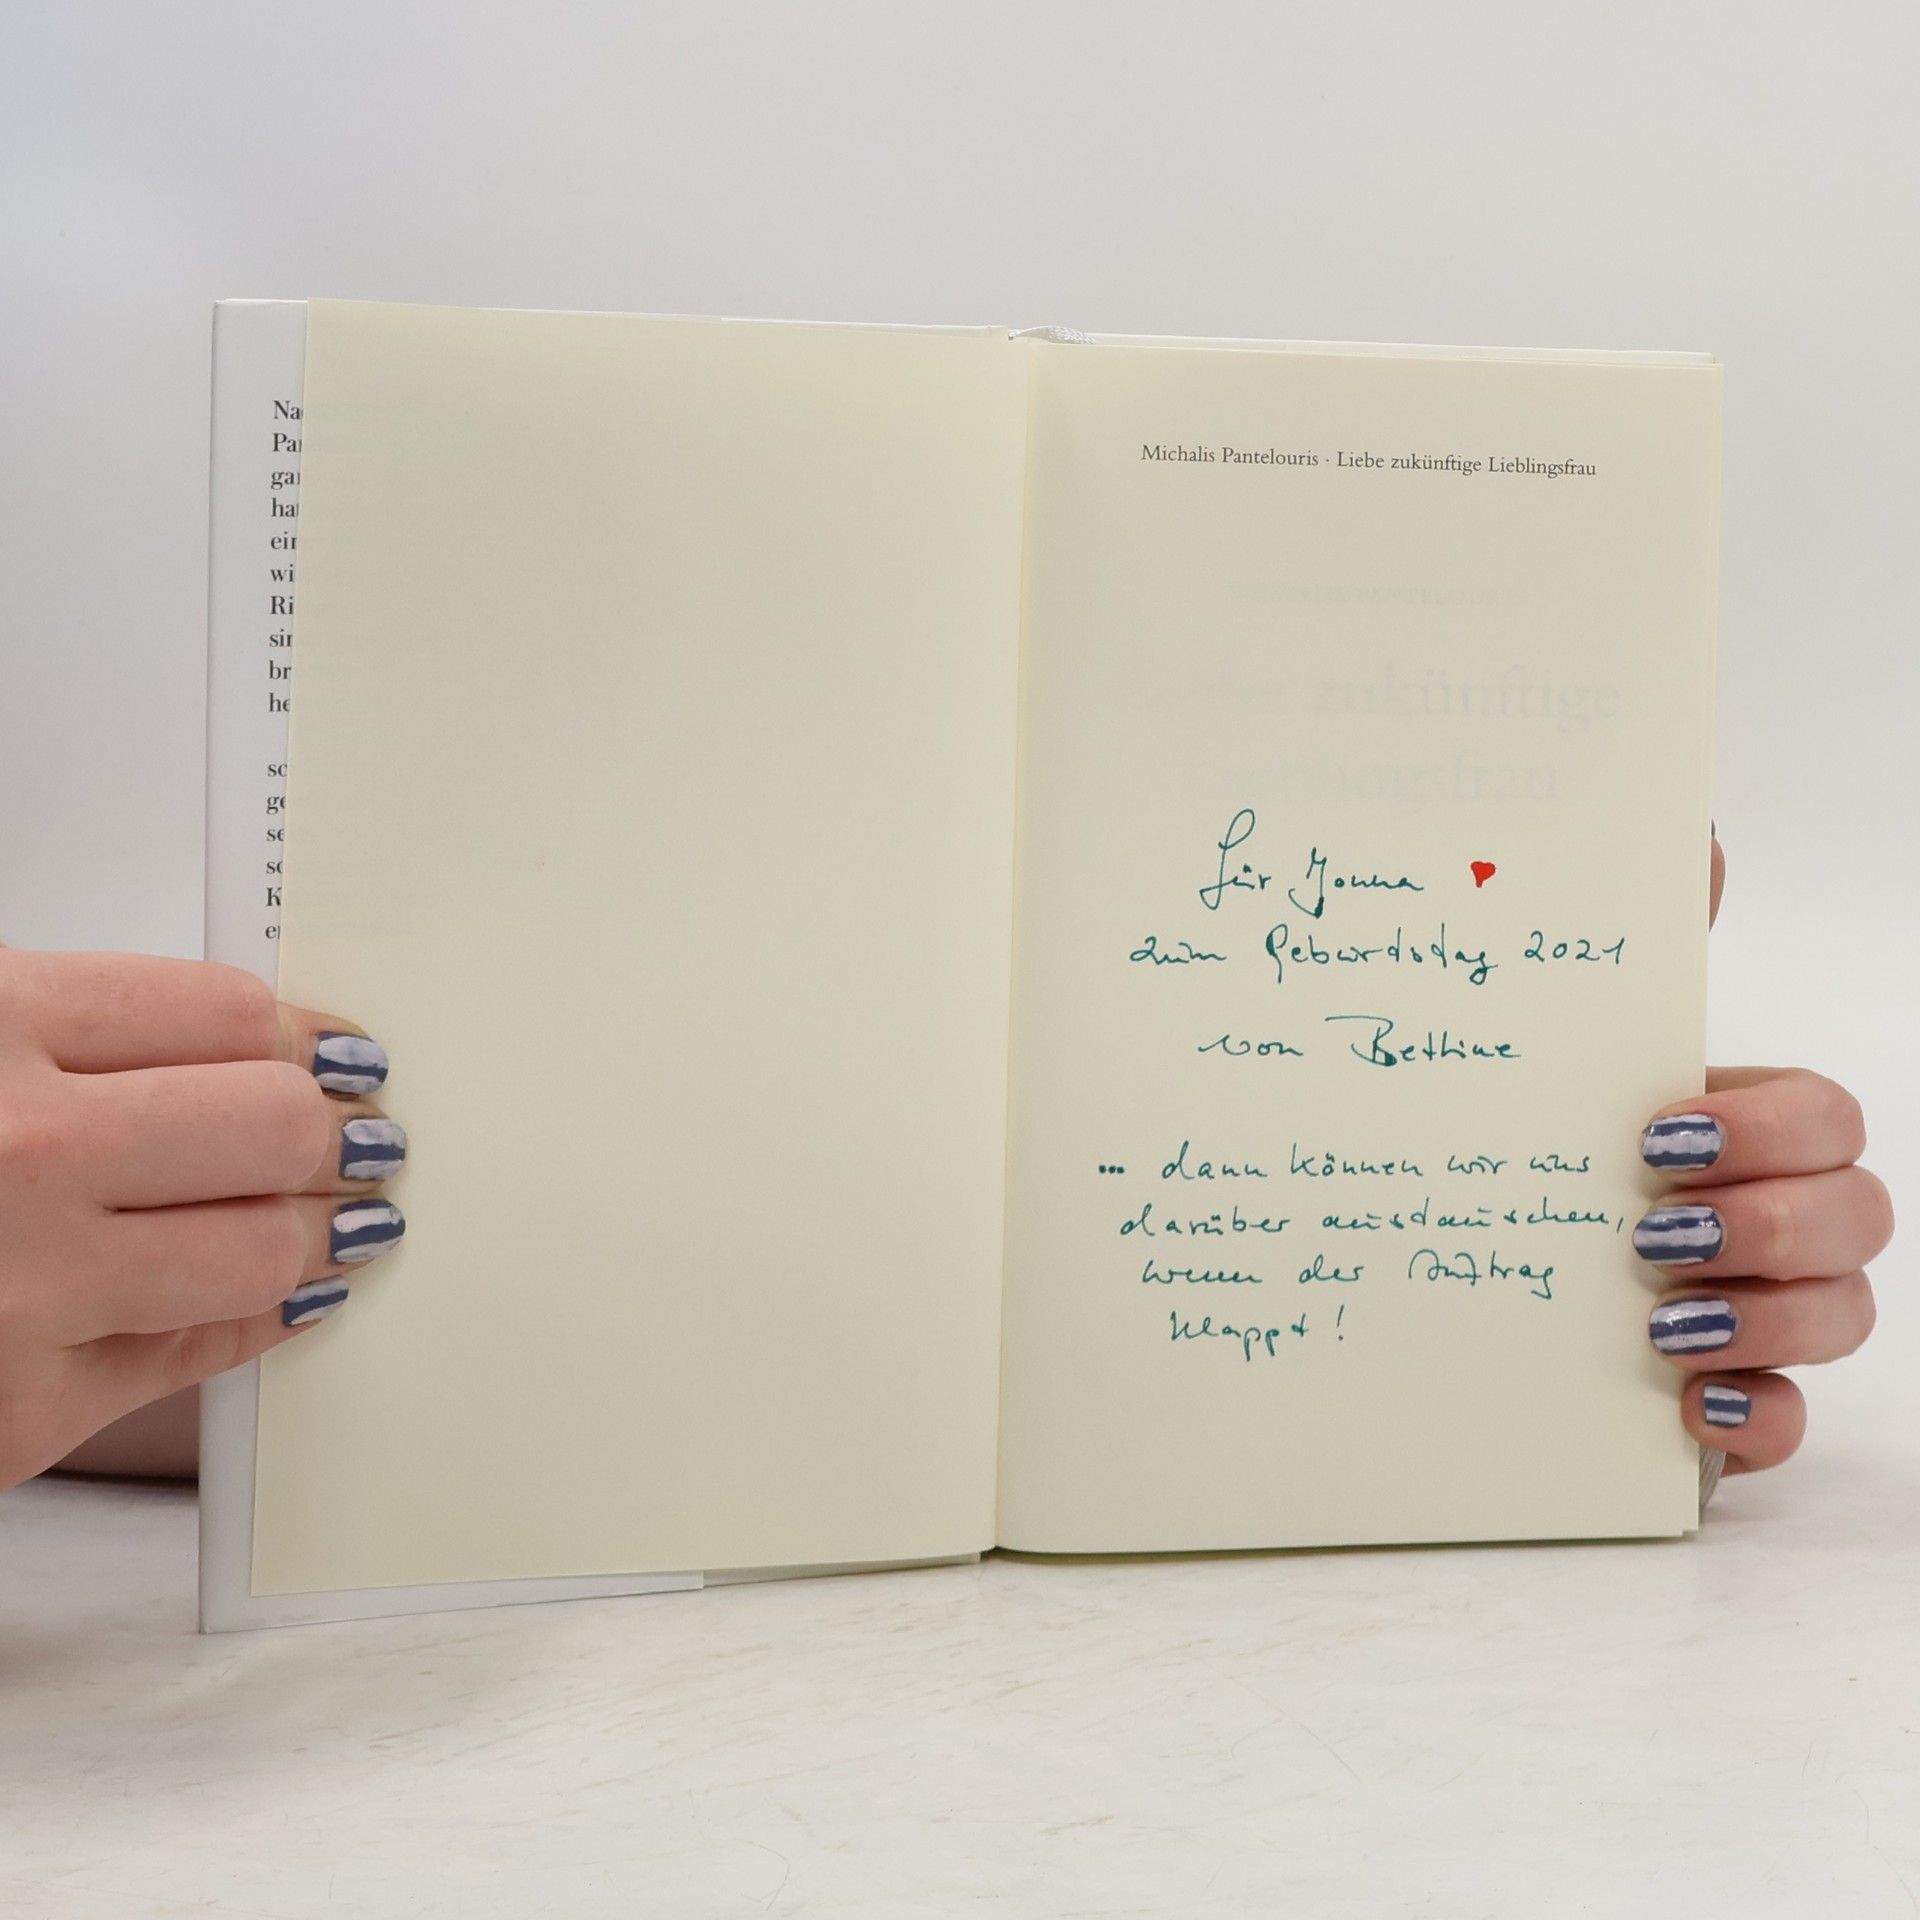 Na
Pa
ga
ha
ein
wi
Ri
sin
br
he
sc
ge
se
so
K
er
Michalis Pantelouris · Liebe zukünftige Lieblingsfrau
zukünftige
lingsfrau
für Jonna ♥
zum Geburtstag 2021
von Bettine
... dann können wir uns
darüber austauschen,
wenn der Auftrag
klappt!